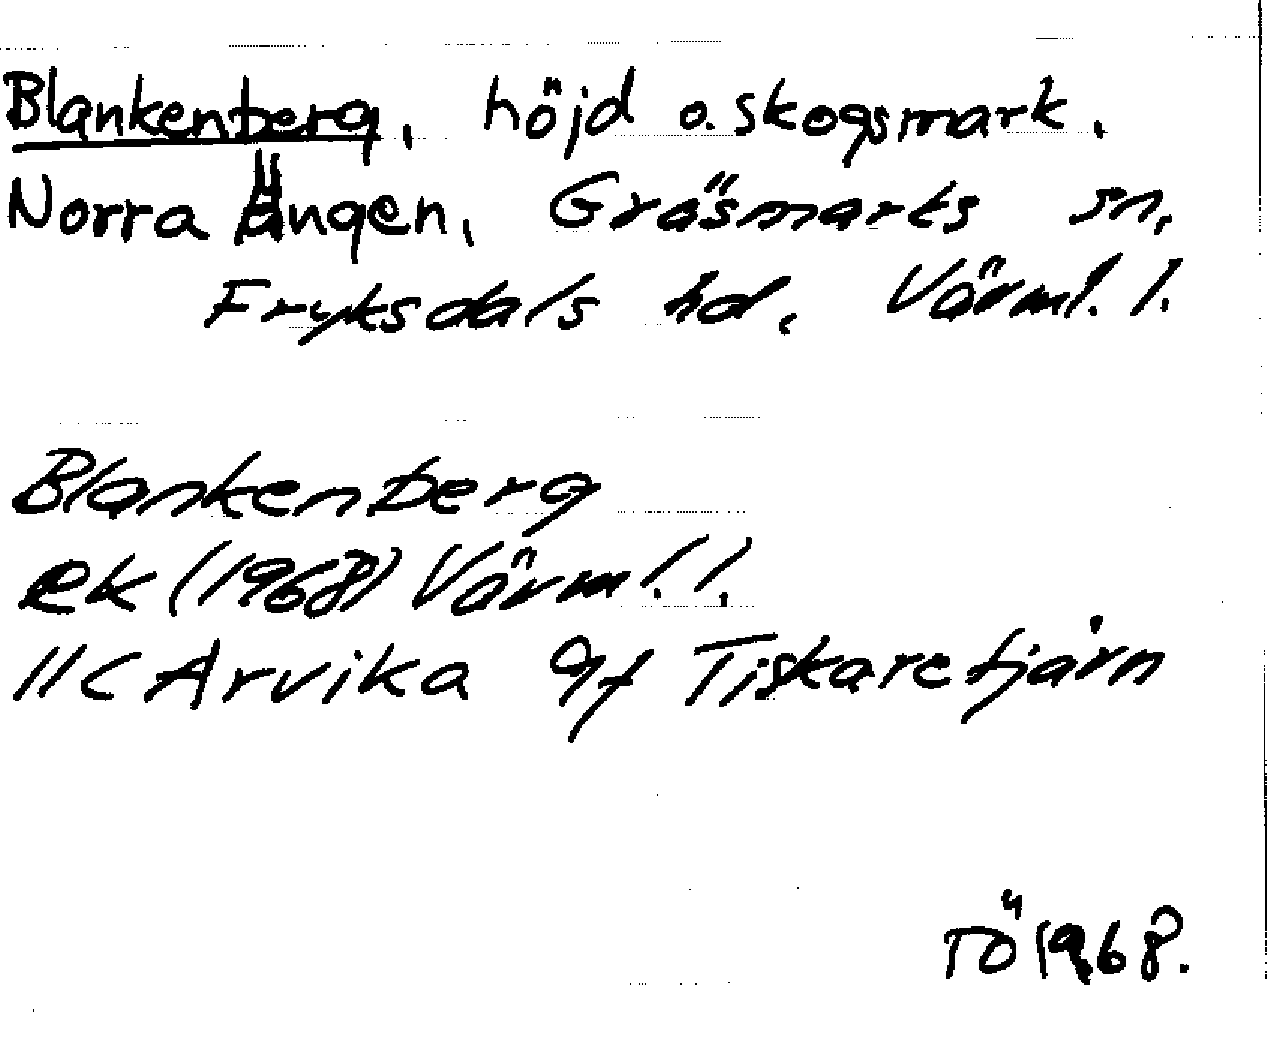 Blankenberg, höjd o. skogsmark.
Norra Ängen, Gräsmarks sn,
Fryksdals hd, Värml. l.
Blankenberg
ek (1968) Värml. l.
11C Arvika 9f Tiskaretjärn
TÖ 1968.